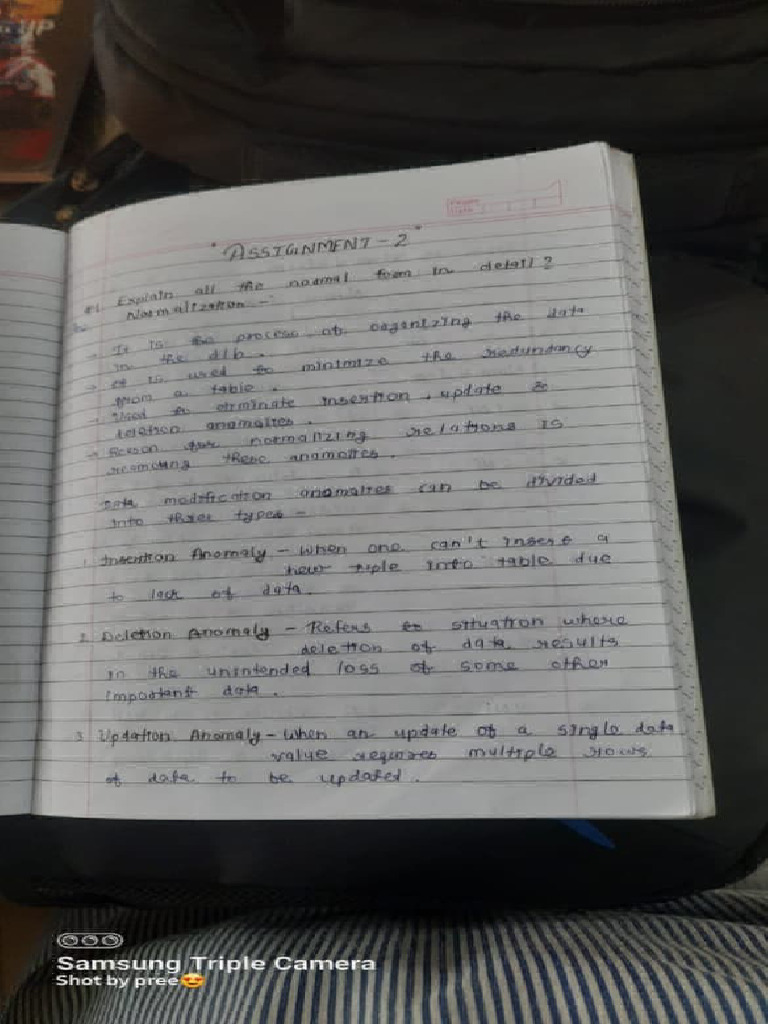 UP
"ASSIGNMENT - 2"
#1. Explain all the normal form in detail?
Normalization -
→ It is the process of organizing the data
in the d/b.
→ It is used to minimize the redundancy
from a table.
→ Used to eliminate insertion, update &
deletion anamolies.
→ Reason for normalizing relations is
removing these anamolies.
Data modification anamolies can be divided
into three types -
1. Insertion Anomaly - When one can't insert a
new tuple into table due
to lack of data.
2. Deletion Anomaly - Refers to situation where
deletion of data results
in the unintended loss of some other
important data.
3. Updation Anomaly - When an update of a single data
value requires multiple rows
of data to be updated.
Samsung Triple Camera
Shot by pree😍